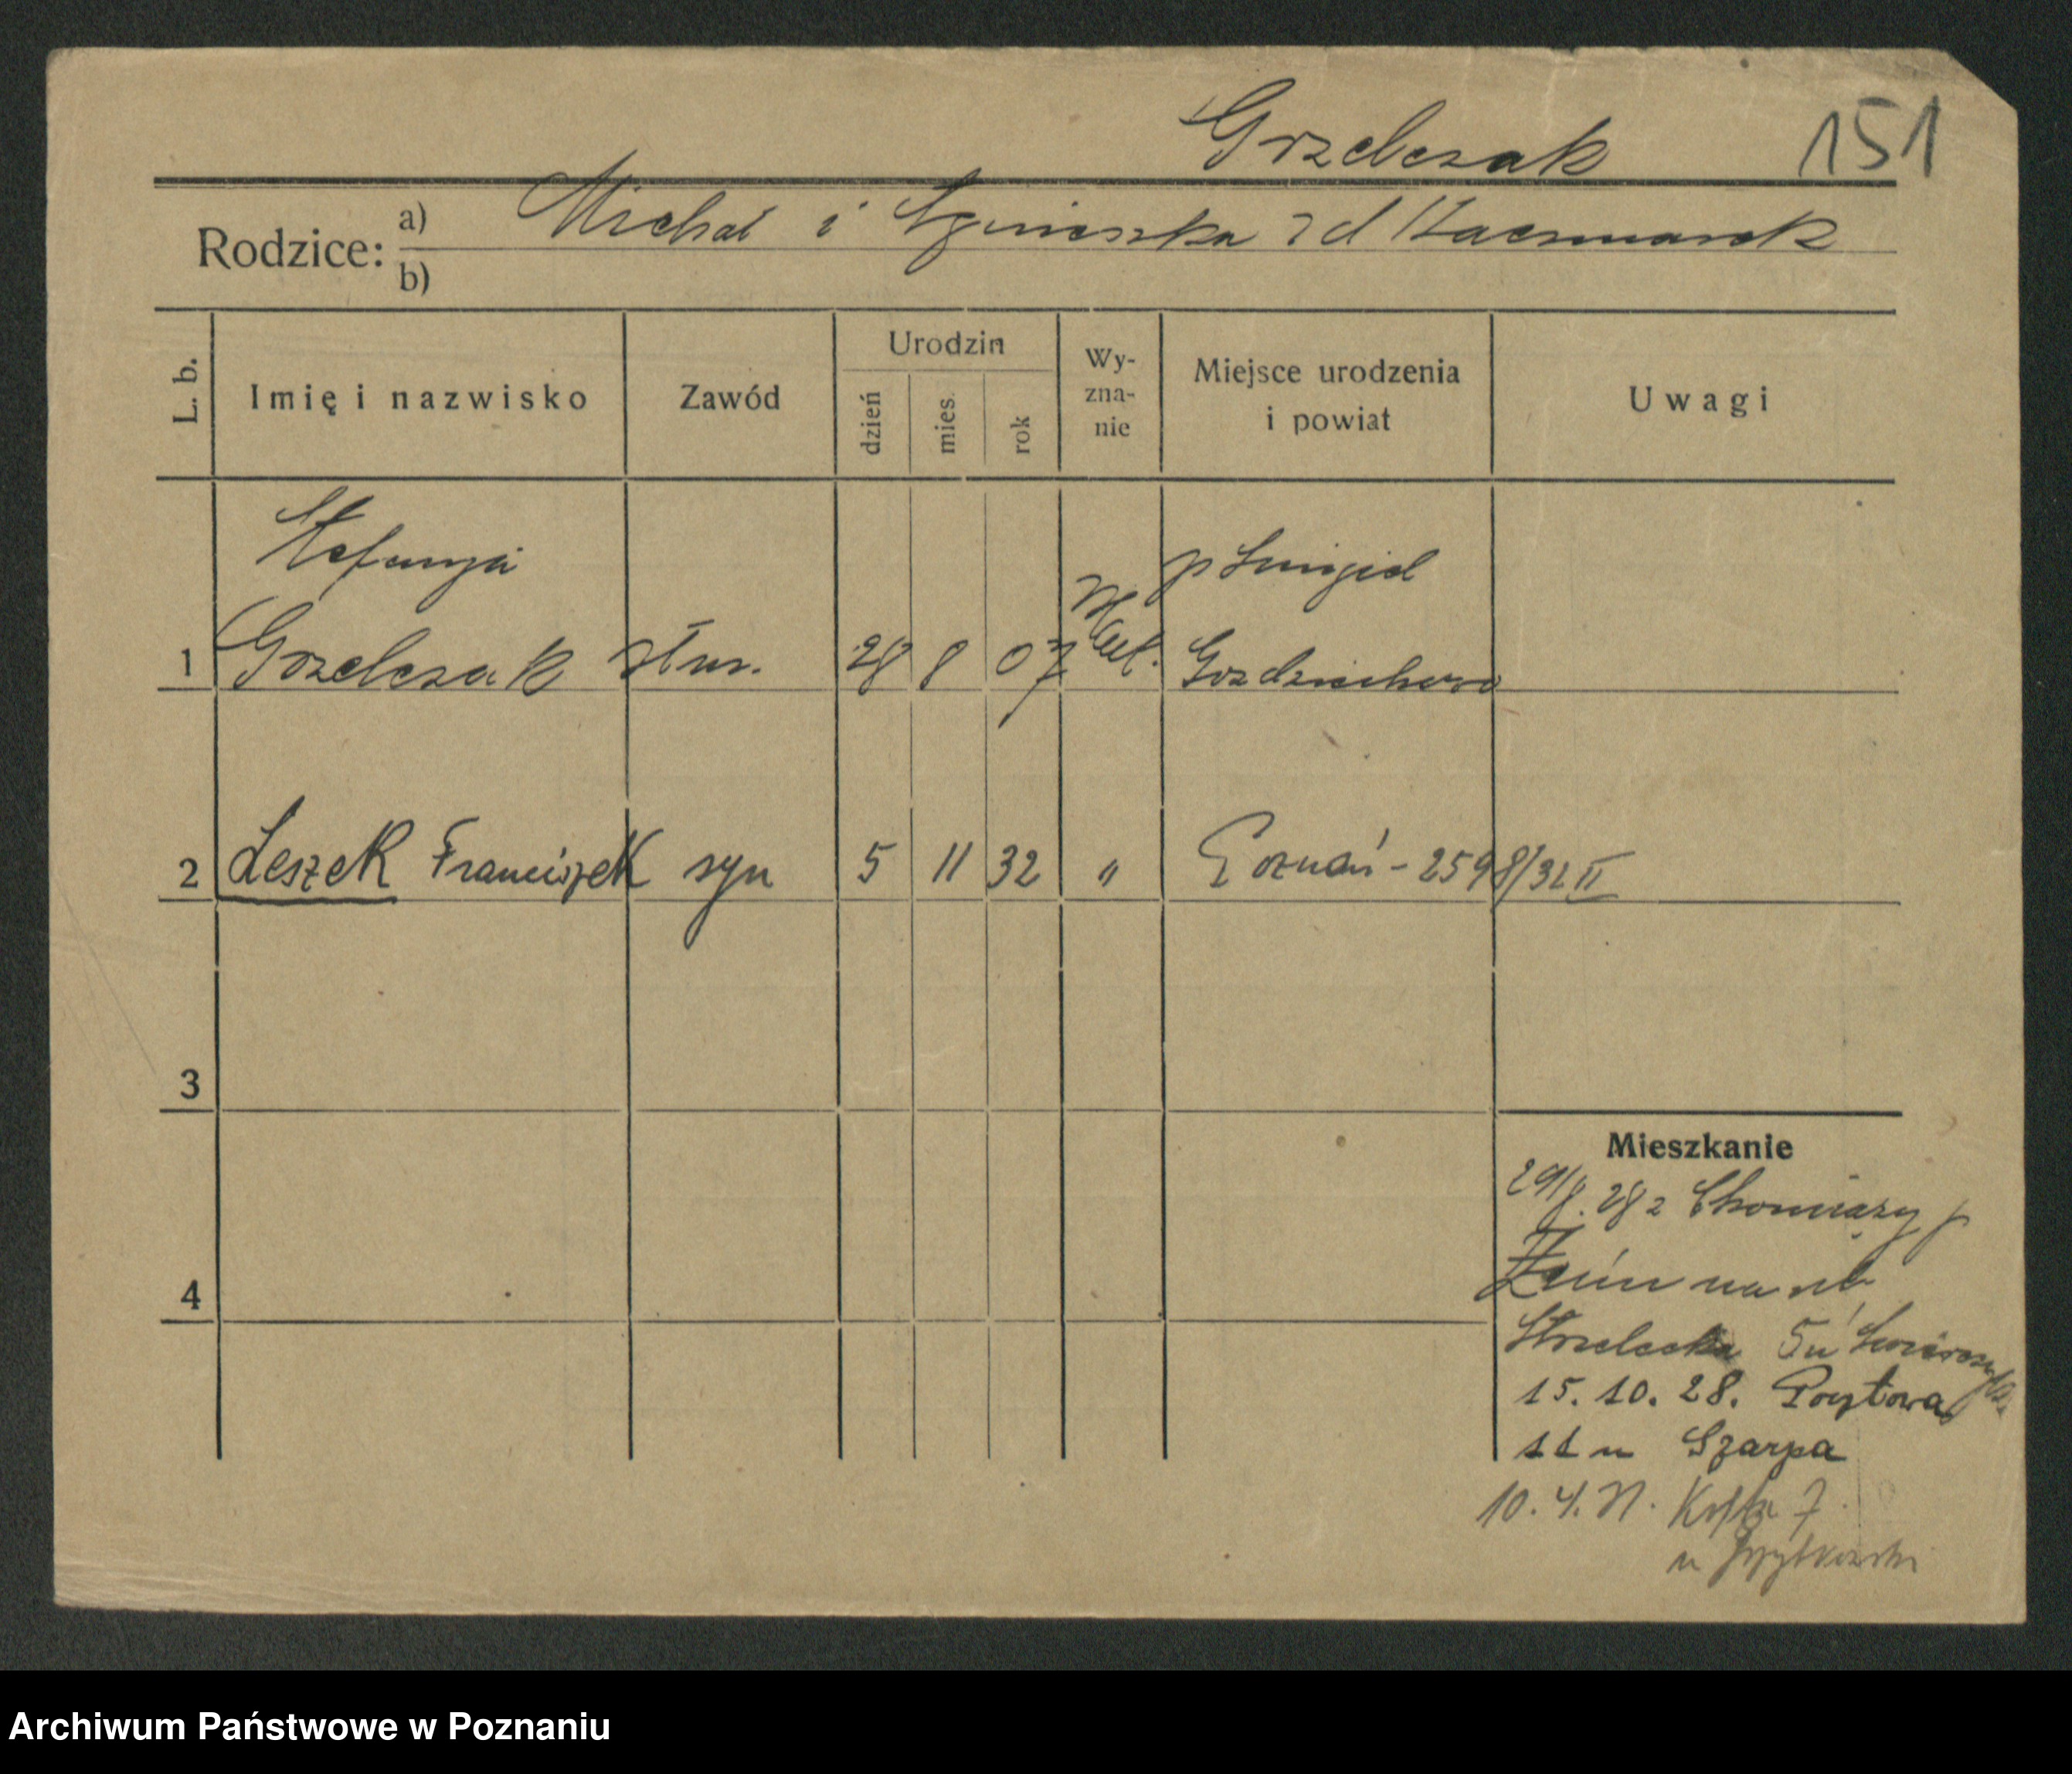 Grzelczak 151
Rodzice: a) Michał i Agnieszka z d Kaczmarek
b)
L. b. Imię i nazwisko Zawód Urodzin dzień mies. rok Wy-zna-nie Miejsce urodzenia i powiat Uwagi
Stefanja p Śmigiel
1 Grzelczak służ. 28 8 07 kat. Goździchowo
2 Leszek Franciszek syn 5 11 32 " Poznań - 2598/32 II
3
Mieszkanie
29/8. 28 z Chomiąży p
4
Żnin na ul
Strzelecka 5 u
15. 10. 28. Pocztowa
11 u Szarpa
10. 4. 7
u
Archiwum Państwowe w Poznaniu